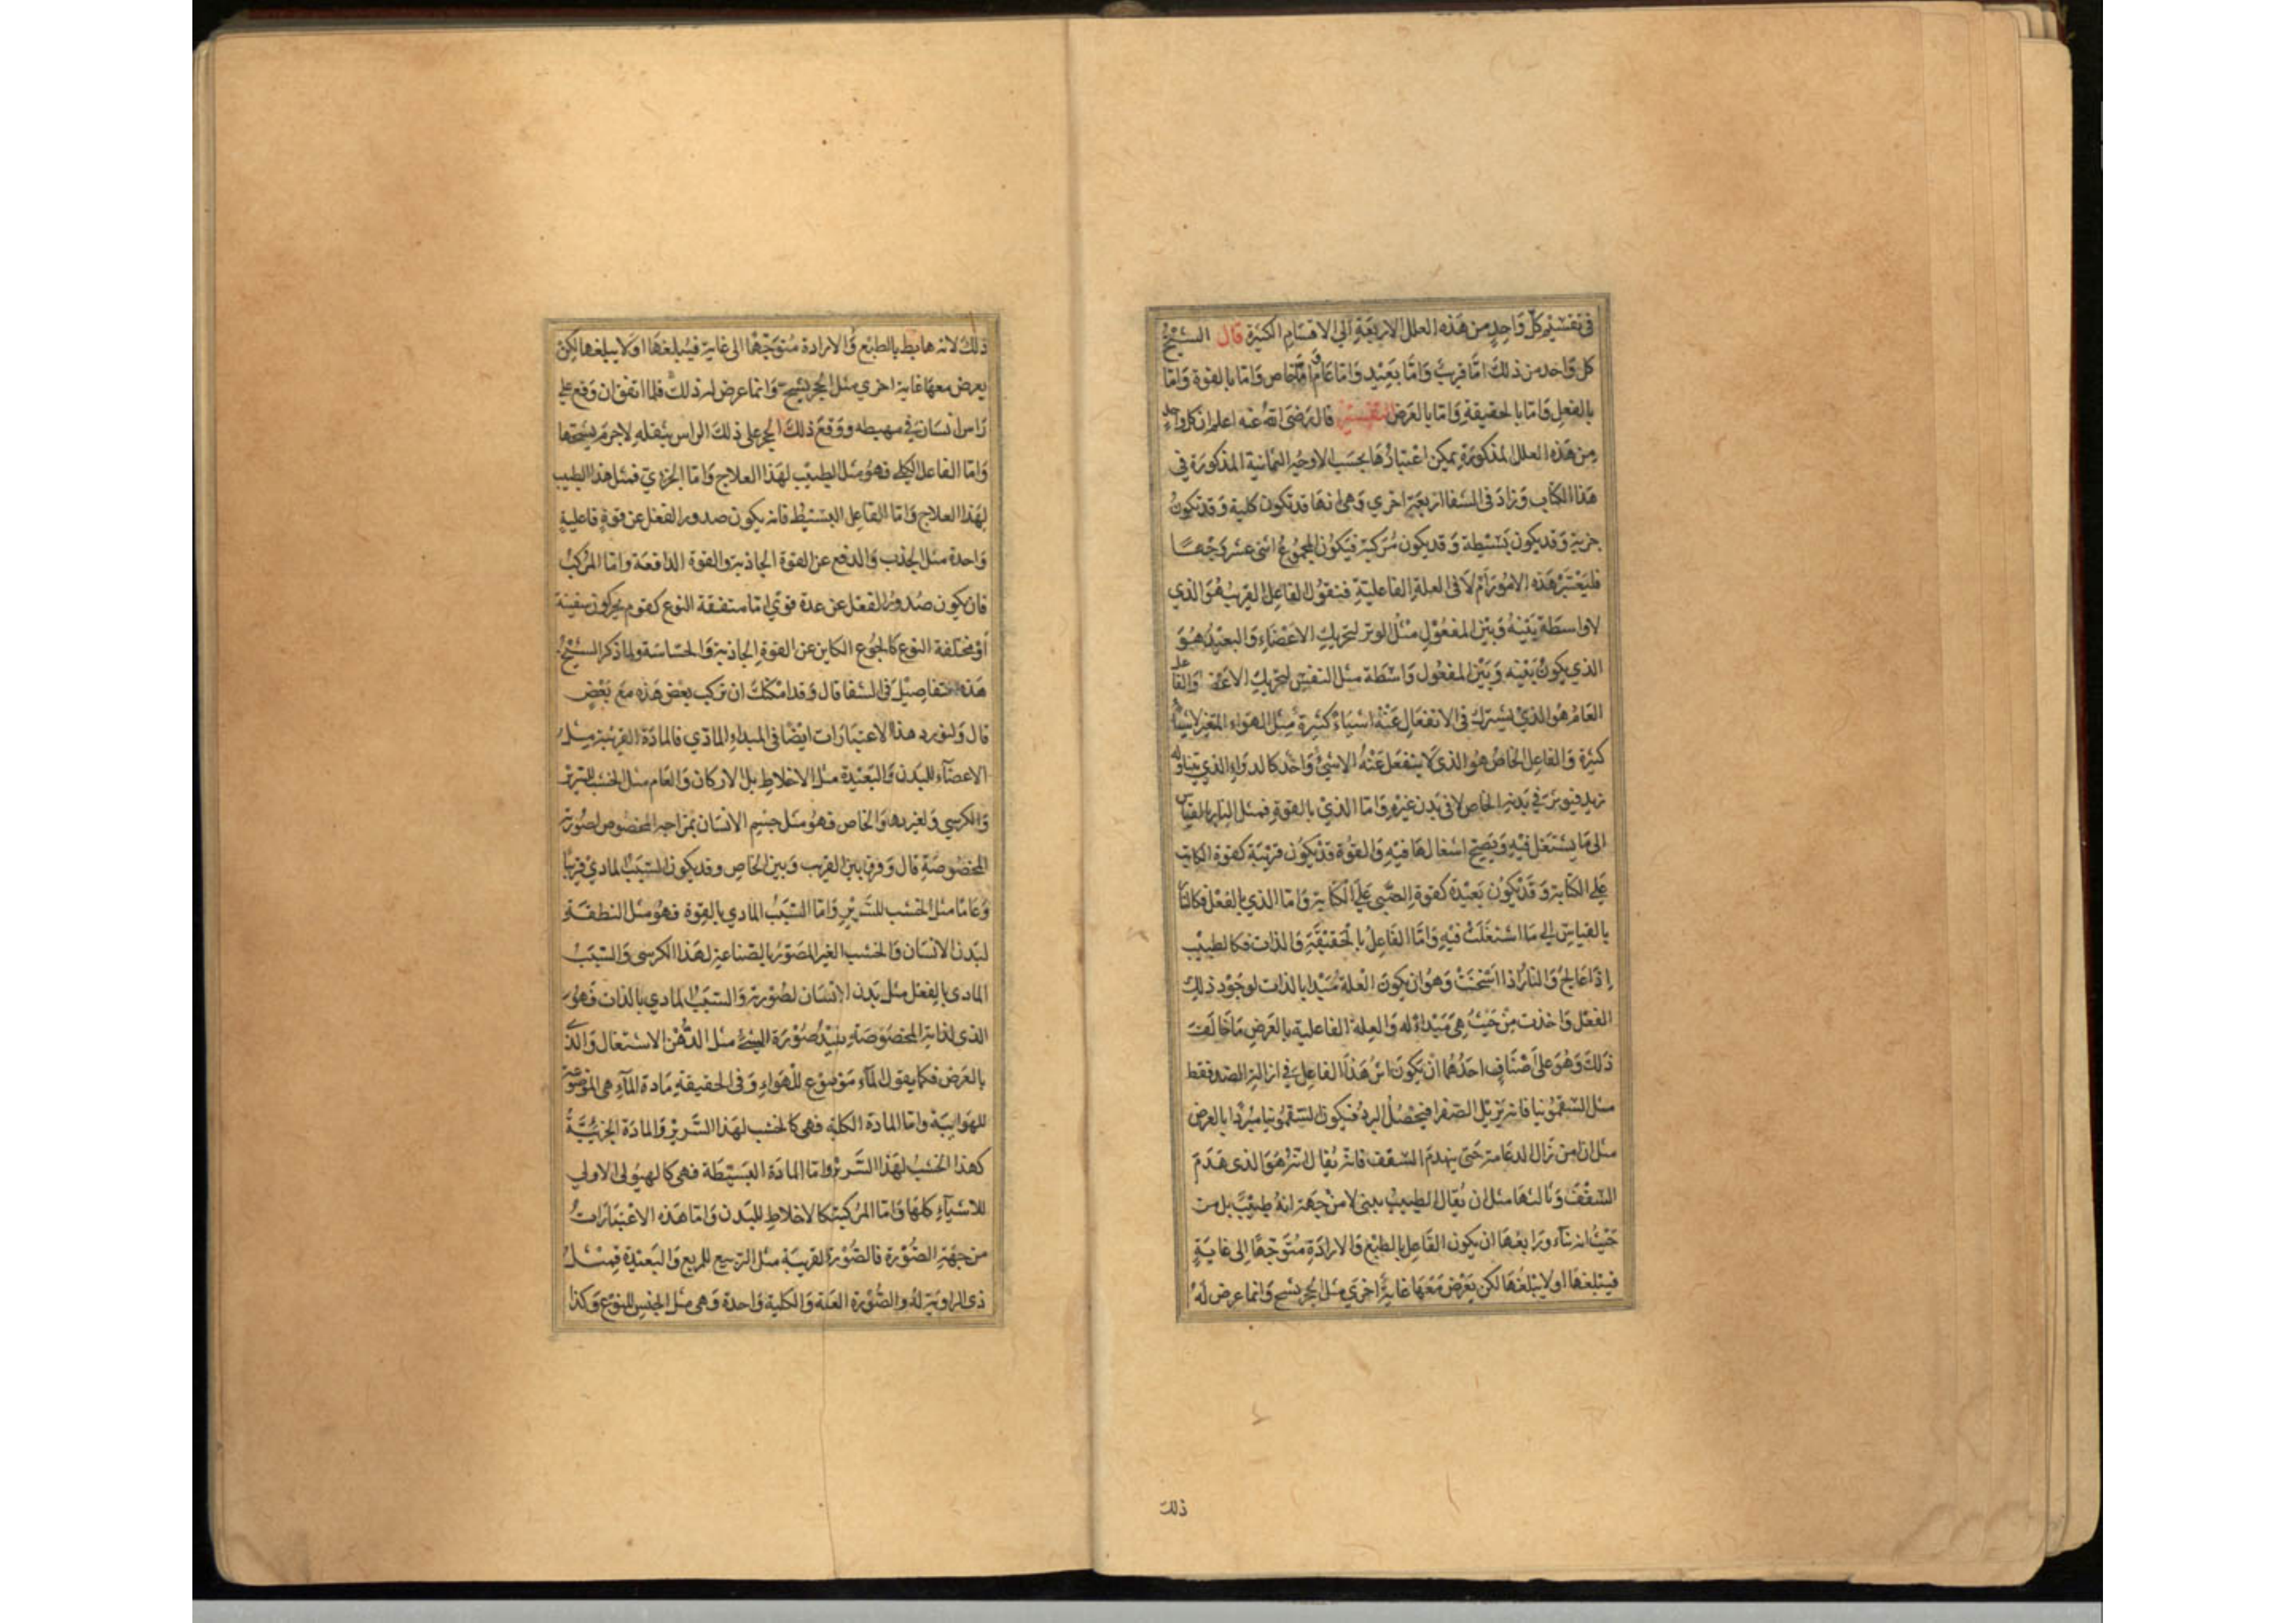 في تقسيم كل واحد من هذه العلل الاربعة الي الاقسام الكثيرة قال الشيخ
كل واحد من ذلك اما قريب واما بعيد واما عام واما خاص واما بالقوة واما
بالفعل واما بالحقيقة واما بالعرض التفسير قال رضى الله عنه اعلم ان كل واحد
من هذه العلل المذكورة يمكن اعتبارها بحسب الاوجه الثمانية المذكورة في
هذا الكتاب وزاد فى الشفا اربعة اخري وهى انها قد تكون كلية وقد تكون
جزية وقد يكون بسيطة وقد يكون مركبة فيكون المجموع اثنى عشر وجها
فليعتبر هذه الامور اولا فى العلة الفاعلية فنقول الفاعل القريب هو الذي
لا واسطة بينه وبين المفعول مثل الوتر لتحريك الاعضاء والبعيد هو
الذي يكون بينه وبين المفعول واسطة مثل النفس لتحريك الاعضا والفاعل
العام هو الذي يشترك فى الانفعال عنه اشياء كثيرة مثل الهواء المغير لاشياء
كثيرة والفاعل الخاص هو الذى لا ينفعل عنه الا شئ واحد كالدواء الذي يتناوله
زيد فيوثر في بدنه الخاص لا فى بدن غيره واما الذي بالقوة فمثل النار بالقياس
الى ما يشتعل فيه ويصح اشتعالها فيه والقوة قد تكون قريبة كقوة الكاتب
على الكتابة وقد تكون بعيدة كقوة الصبى على الكتابة واما الذي بالفعل فكالنار
بالقياس الى ما اشتعلت فيه واما الفاعل بالحقيقة والذات فكالطبيب
اذا عالج والنار اذا اسخنت وهو ان يكون العلة مبدا بالذات لوجود ذلك
الفعل واخذت من حيث هى مبداء له والعلة الفاعلية بالعرض ما خالف
ذلك وهو على اصناف احدهما ان يكون اثر هذا الفاعل في ازالة الضد فقط
مثل السقمونيا فانه يزيل الصفرا فيحصل البرد فيكون السقمونيا مبردا بالعرض
مثل ان من زال الدعامة حتى ينهدم السقف فانه يقال انه هو الذى هدم
السقف وثالثها مثل ان يقال الطبيب يبنى لا من جهة انه طبيب بل من
حيث انه بناء ورابعها ان يكون الفاعل بالطبع والارادة متوجها الى غاية
فيبلغها او لا يبلغها لكن يعرض معها غاية اخرى مثل الحجر يشج وانما عرض له
ذلك
ذلك لانه هابط بالطبع والارادة متوجها الى غاية فيبلغها او لا يبلغها لكن
يعرض معها غاية اخري مثل الحجر يشج وانما عرض له ذلك فلما اتفق ان وقع على
راس انسان في مهبطه ووقع ذلك الحجر على ذلك الراس بثقله لا جرم شجها
واما الفاعل الكلي فهو مثل الطبيب لهذا العلاج واما الجزءي فمثل هذا الطبيب
لهذا العلاج واما الفاعل البسيط فانه يكون صدور الفعل عن قوة فاعلية
واحدة مثل الجذب والدفع عن القوة الجاذبة والقوة الدافعة واما المركب
فان يكون صدور الفعل عن عدة قوي اما متفقة النوع كقوم يحركون سفينة
او مختلفة النوع كالجوع الكاين عن القوة الجاذبة والحساسة ولما ذكر الشيخ
هذه التفاصيل فى الشفا قال وقد امكنك ان تركب بعض هذه مع بعض
قال ولنورد هذا الاعتبارات ايضا فى المبداء المادي فالمادة القريبة مثل
الاعضاء للبدن والبعيدة مثل الاخلاط بل الاركان والعام مثل الخشب للسرير
والكرسي ولغيرها والخاص فهو مثل جسم الانسان بمزاجه المخصوص لصورته
المخصوصة قال وفرق بين القريب وبين الخاص وقد يكون السبب المادي قريبا
وعاما مثل الخشب للسرير واما السبب المادي بالقوة فهو مثل النطفة
لبدن الانسان والخشب الغير المصور بالصناعة لهذا الكرسى والسبب
المادى بالفعل مثل بدن الانسان لصورته والسبب المادي بالذات فهو
الذى لذاته المخصوصة يفيد صورة الشئ مثل الدهن الاشتعال والذى
بالعرض فكما يقول الماء موضوع للهواء وفى الحقيقة مادة الماء هى الموضوعة
للهوايية واما المادة الكلية فهى كالخشب لهذا السرير والمادة الجزئية
كهذا الخشب لهذا السرير واما المادة البسيطة فهى كالهيولى الاولي
للاشياء كلها واما المركبة كالاخلاط للبدن واما هذه الاعتبارات
من جهة الصورة فالصورة القريبة مثل التربيع للمربع والبعيدة فمثل
ذى الزاوية له والصورة العامة والكلية واحدة وهى مثل الجنس للنوع وكذا